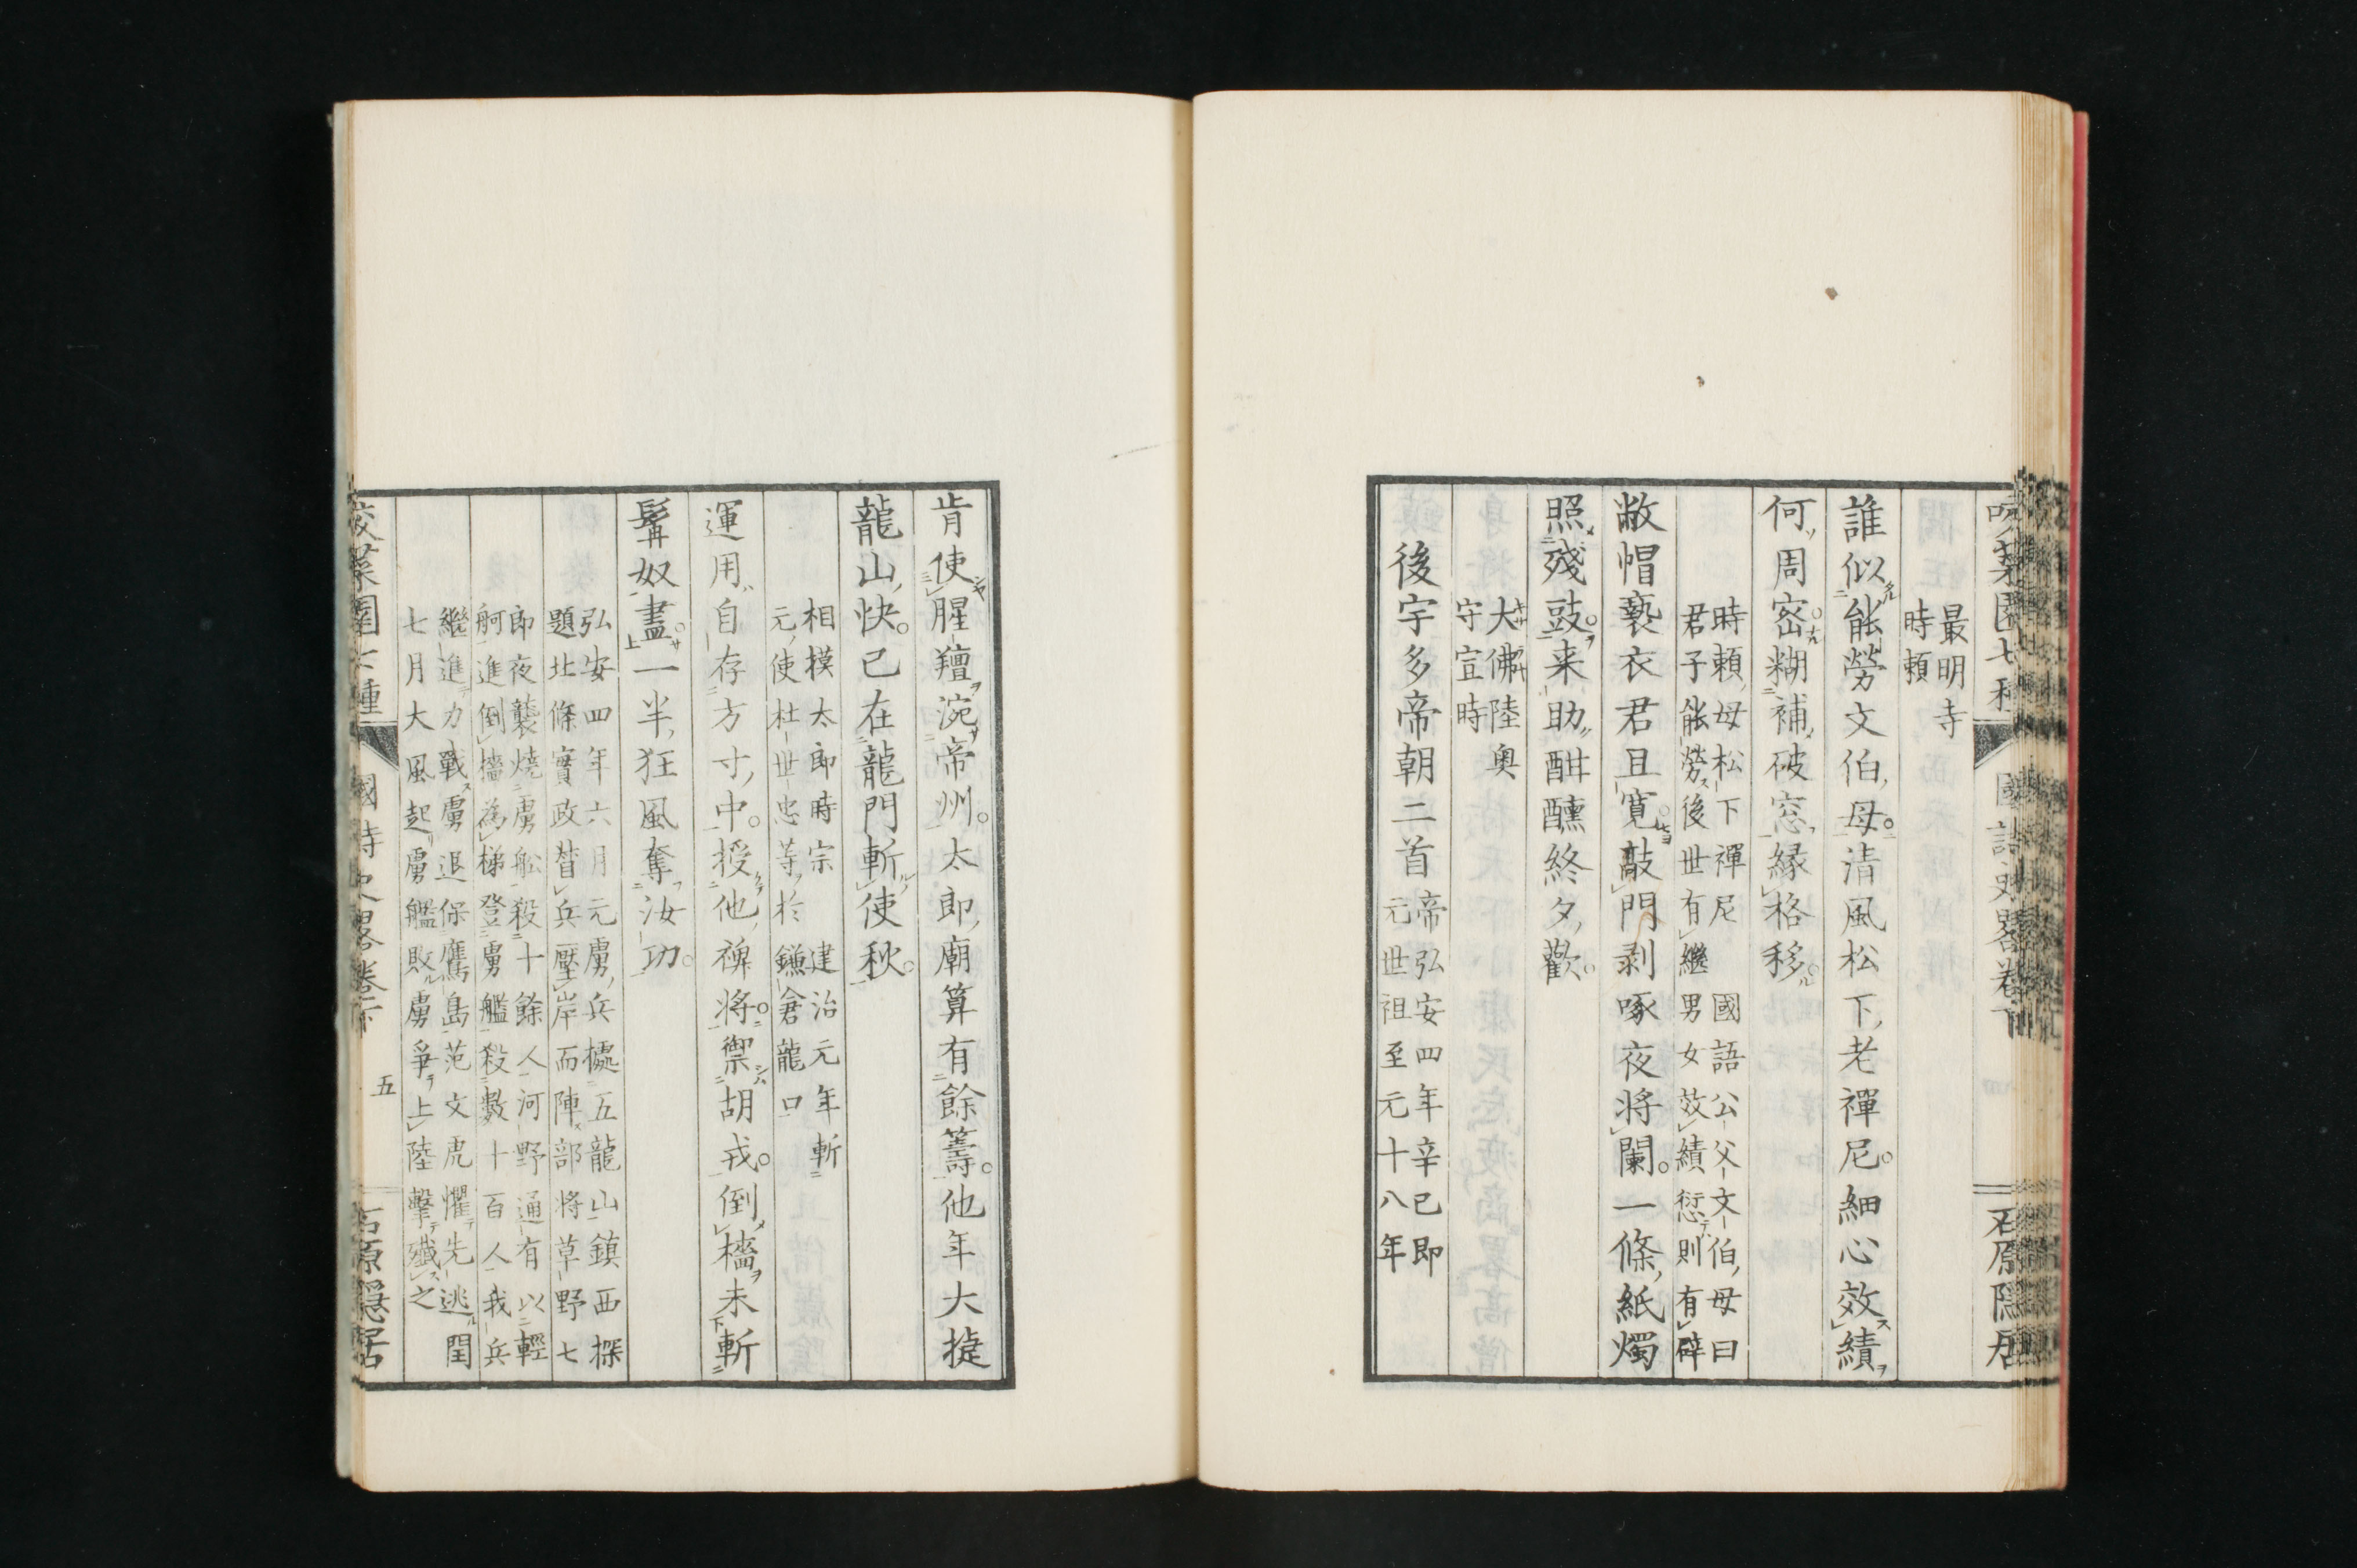 國詩史畧卷下
石原隱居
最明寺
時頼
誰似能勞文伯母清風松下老禪尼細心效績
何周密糊補破窓縁格移
時頼母松下禪尼 國語公父文伯母曰
君子能勞後世有繼男女效績愆則有辟
敝帽褻衣君且寛敲門剥啄夜將闌一條紙燭
照殘豉来助酣醺終夕歡
大佛陸奥
守宣時
後宇多帝朝二首
帝弘安四年辛巳即
元世祖至元十八年
肯使腥羶涴帝州太郎廟算有餘籌他年大捷
龍山快已在龍門斬使秋
相摸太郎時宗 建治元年斬
元使杜世忠等於鎌倉龍口
運用自存方寸中授他裨將禦胡戎倒檣未斬
髯奴盡一半狂風奪汝功
弘安四年六月元虜兵據五龍山鎮西探
題北條實政督兵壓岸而陣部将草野七
郎夜襲燒虜舩殺十餘人河野通有以輕
舸進倒檣為梯登虜艦殺數十百人我兵
繼進力戰虜退保鷹島范文虎懼先逃閏
七月大風起虜艦敗虜爭上陸擊殲之
國詩史畧卷下
五
石原隱居